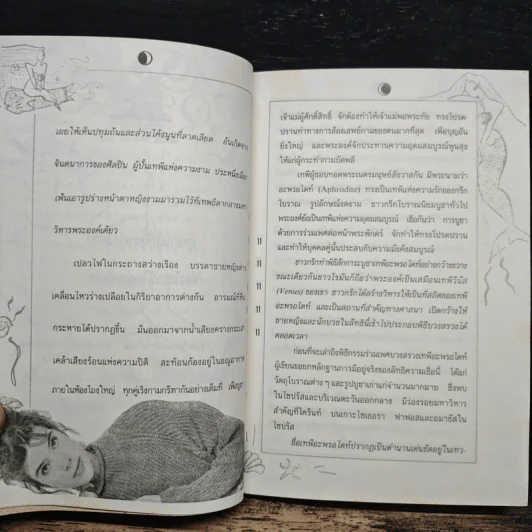 เผยให้เห็นปทุมถันและส่วนโค้งนูนที่ลาดเลียด อันเกิดจาก
จินตนาการของศิลปิน ผู้ปั้นเทพีแห่งความงาม ประหนึ่งเลือก
เฟ้นเอารูปร่างหน้าตาหญิงงามมารวมไว้ที่เทพธิดากลางมหา
วิหารพระองค์เดียว
เปลวไฟในกระถางสว่างเรือง บรรดาชายหญิงต่าง
เคลื่อนไหวร่างเปลือยในกิริยาอาการต่างกัน อารมณ์ที่
กระหายได้ปรากฏขึ้น มันออกมาจากน้ำเสียงครางกระเส่า
เคล้าเสียงร้อนแห่งความปีติ สะท้อนก้องอยู่ในอณูอากาศ
ภายในห้องโถงใหญ่ ทุกคู่เริงกามกรีฑากันอย่างเต็มที่
เจ้าแม่ผู้ศักดิ์สิทธิ์ จักต้องทำให้เจ้าแม่พอพระทัย ทรงโปรด
ปรานท่าทางการส้องเสพย์กามของตนมากที่สุด เพื่อบุญอัน
ยิ่งใหญ่ และพระองค์จักประทานความอุดมสมบูรณ์พูนสุข
ให้แก่ผู้กระทำกามบัดพลี
เทพีผู้ชอบทอดพระเนตรมนุษย์สังวาสกัน มีพระนามว่า
อะพรอไดท์ (Aphrodite) ทรงเป็นเทพีแห่งความรักของกรีก
โบราณ รูปลักษณ์งดงาม ชาวกรีกโบราณนิยมบูชาทั่วไป
พระองค์ยังเป็นเทพีแห่งความอุดมสมบูรณ์ เชื่อกันว่า การบูชา
ด้วยการร่วมเพศต่อหน้าพระพักตร์ จักทำให้ทรงโปรดปราน
และทำให้บุคคลคู่นั้นประสบกับความมั่งคั่งสมบูรณ์
ชาวกรีกทำพิธีสักการะบูชาเทพีอะพรอไดท์อย่างกว้างขวาง
ขณะเดียวกันชาวโรมันก็ถือว่าพระองค์เป็นเสมือนเทพีวีนัส
(Venus) ของเขา ชาวกรีกได้สร้างวิหารให้เป็นที่สถิตของเทพีอะ
พรอไดท์ และเป็นสถานที่สำคัญทางศาสนา เปิดกว้างให้
ชายหญิงและนักบวชในลัทธินี้เข้าไปประกอบพิธีบวงสรวงได้
ตลอดเวลา
ก่อนที่จะเล่าถึงพิธีกรรมร่วมเพศบวงสรวงเทพีอะพรอไดท์
ผู้เขียนขอยกหลักฐานการมีอยู่จริงของลัทธิความเชื่อนี้ ได้แก่
วัตถุโบราณต่าง ๆ และรูปบูชาเก่าแก่จำนวนมากมาย ซึ่งพบ
ในไซปรัสและบริเวณตะวันออกกลาง มีร่องรอยมหาวิหาร
สำคัญที่โครินท์ บนเกาะไซเธอรา ฟาฟอสและอมาธัสใน
ไซปรัส
ชื่อเทพีอะพรอไดท์ปรากฏเป็นตำนานเด่นชัดอยู่ในเทว-